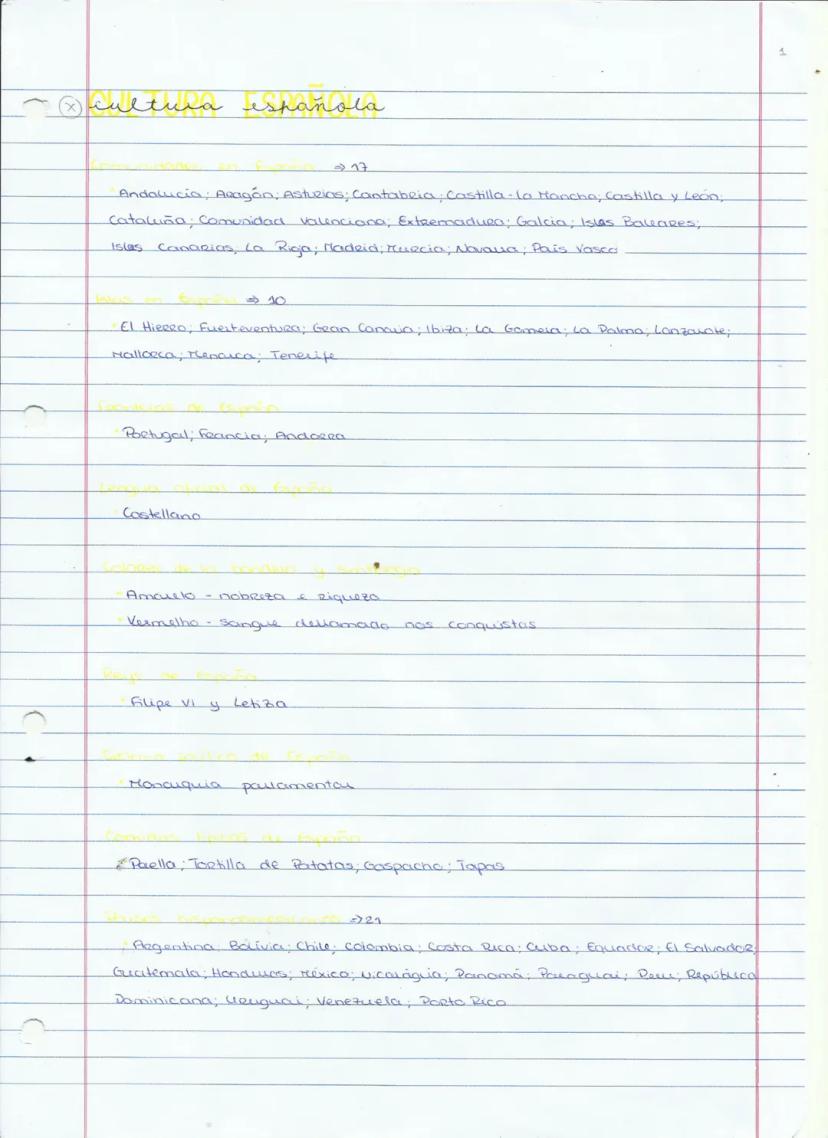 1
CULTURA ESPAÑOLA
(x) cultura española
Comunidades en España ⇒ 17
Andalucía; Aragón; Asturias; Cantabria; Castilla-la Mancha; Castilla y León;
Cataluña; Comunidad valenciana; Extremadura; Galcia; Islas Baleares;
Islas Canarias, La Rioja; Madrid; Murcia; Navarra; País Vasco
Islas en España ⇒ 10
El Hierro; Fuerteventura; Gran Canaria; Ibiza; La Gomera; La Palma; Lanzarote;
Mallorca; Menorca; Tenerife
Fronteras de España
Portugal; Francia; Andorra
Lengua oficial de España
Castellano
Colores de la bandera y simbología
Amarelo - nobreza e riqueza
Vermelho - sangue derramado nas conquistas
Reys de España
Filipe VI y Letiza
Sistema político de España
Monarquia parlamentar
Comidas típicas de España
Paella; Tortilla de Patatas; Gaspacho; Tapas
Países hispanoamericanos ⇒ 21
Argentina; Bolívia; Chile; Colombia; Costa Rica; Cuba; Equador; El Salvador;
Guatemala; Honduras; México; Nicarágua; Panamá; Paraguai; Peru; República
Dominicana; Uruguai; Venezuela; Porto Rico